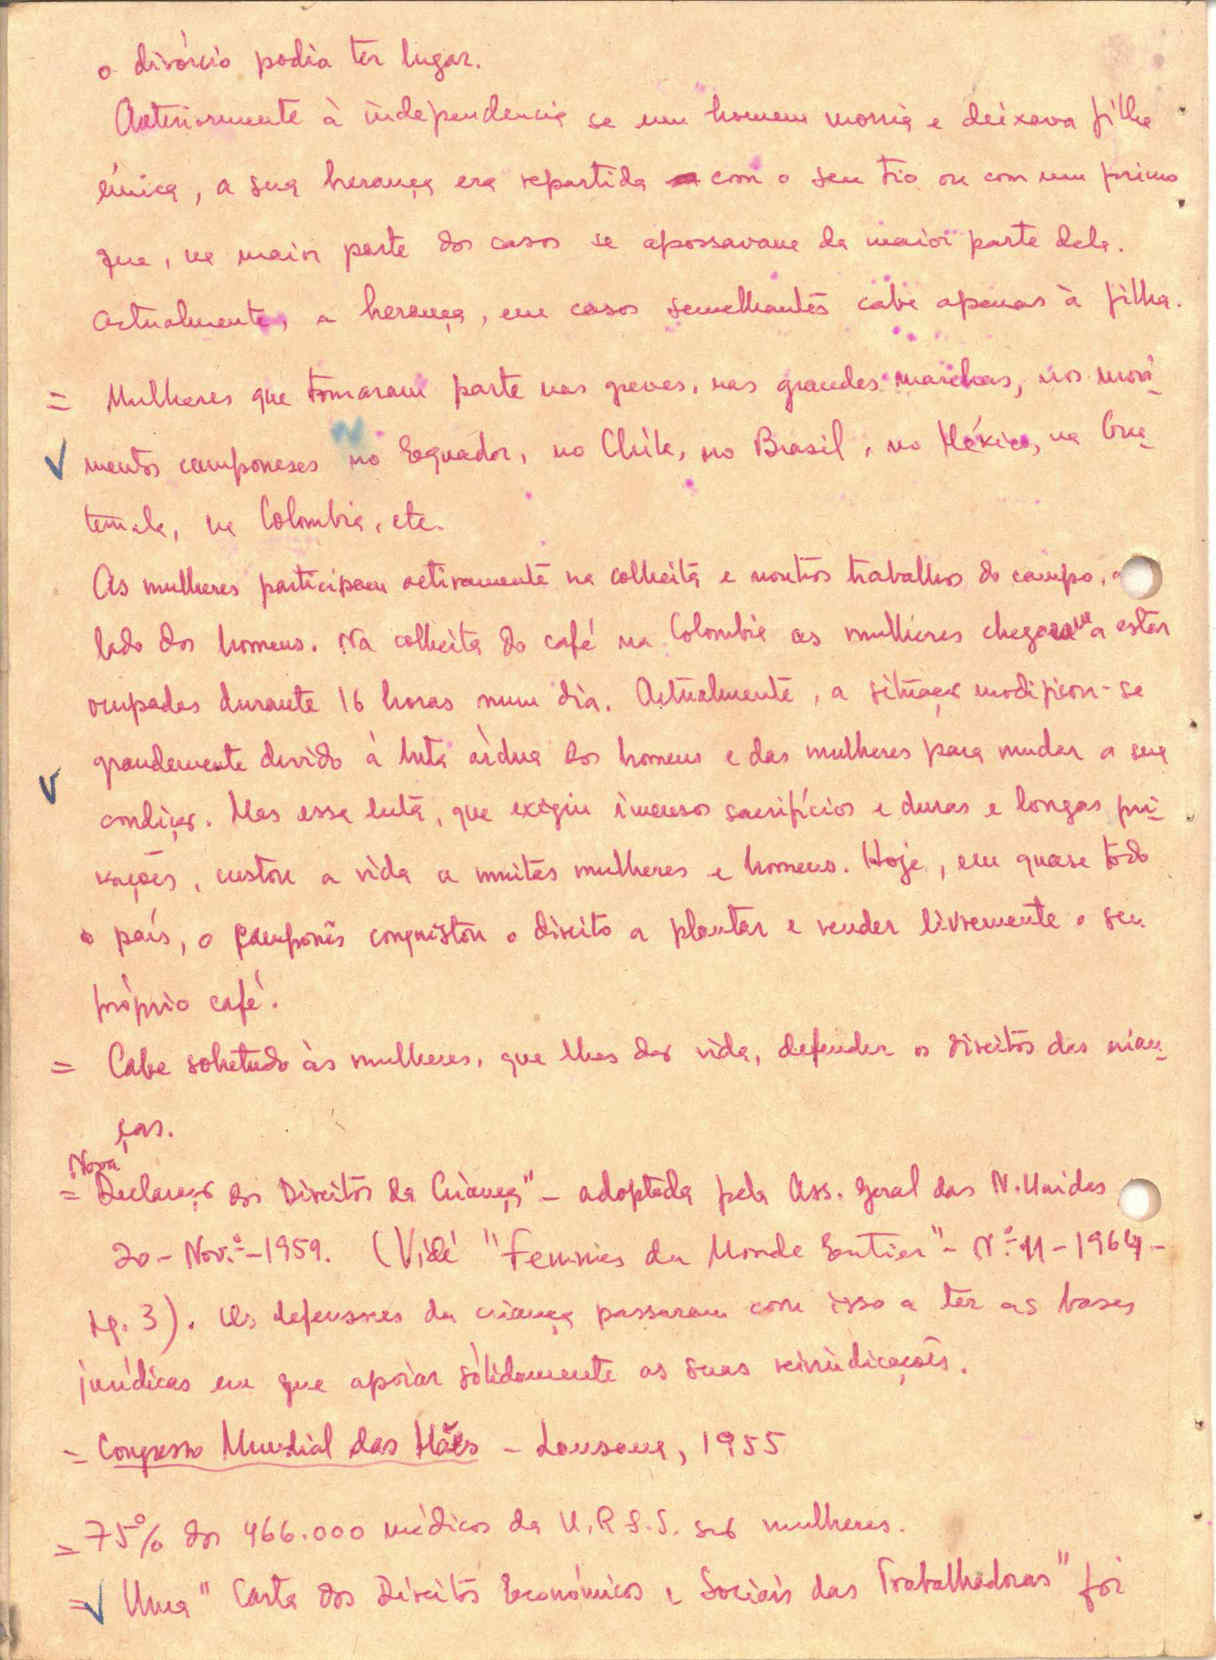 o divórcio podia ter lugar.
Anteriormente à independencia se um homem morria e deixava filha
única, a sua herança era repartida com o seu tio ou com um primo
que, na maior parte dos casos se apossavam da maior parte dela.
Actualmente, a herança, em casos semelhantes cabe apenas à filha.
= Mulheres que tomaram parte nas greves, nas grandes marchas, nos movi-
mentos camponeses no Equador, no Chile, no Brasil, no México, na Gua-
temala, na Colombia, etc.
As mulheres participam activamente na colheita e noutros trabalhos do campo, ao
lado dos homens. Na colheita do café na Colombia as mulheres chegavam a estar
ocupadas durante 16 horas num dia. Actualmente, a situação modificou-se
grandemente devido à luta árdua dos homens e das mulheres para mudar a sua
condição. Mas essa luta, que exigiu imensos sacrifícios e duras e longas pri-
vações, custou a vida a muitas mulheres e homens. Hoje, em quase todo
o país, o camponês conquistou o direito a plantar e vender livremente o seu
próprio café.
= Cabe sobretudo às mulheres, que lhes dão vida, defender os direitos das crian-
ças.
Nova
= Declaração dos Direitos da Criança" - adoptada pela Ass. Geral das N. Unidas
20 - Nov.º - 1959. (Vidé "Femmes du Monde Entier" - Nº 11 - 1964 -
pg. 3). Os defensores da criança passaram com isso a ter as bases
jurídicas em que apoiar sòlidamente as suas reivindicações.
= Congresso Mundial das Mães - Lausana, 1955
= 75% dos 466.000 médicos da U.R.S.S. são mulheres.
= Uma "Carta dos Direitos Económicos e Sociais das Trabalhadoras" foi